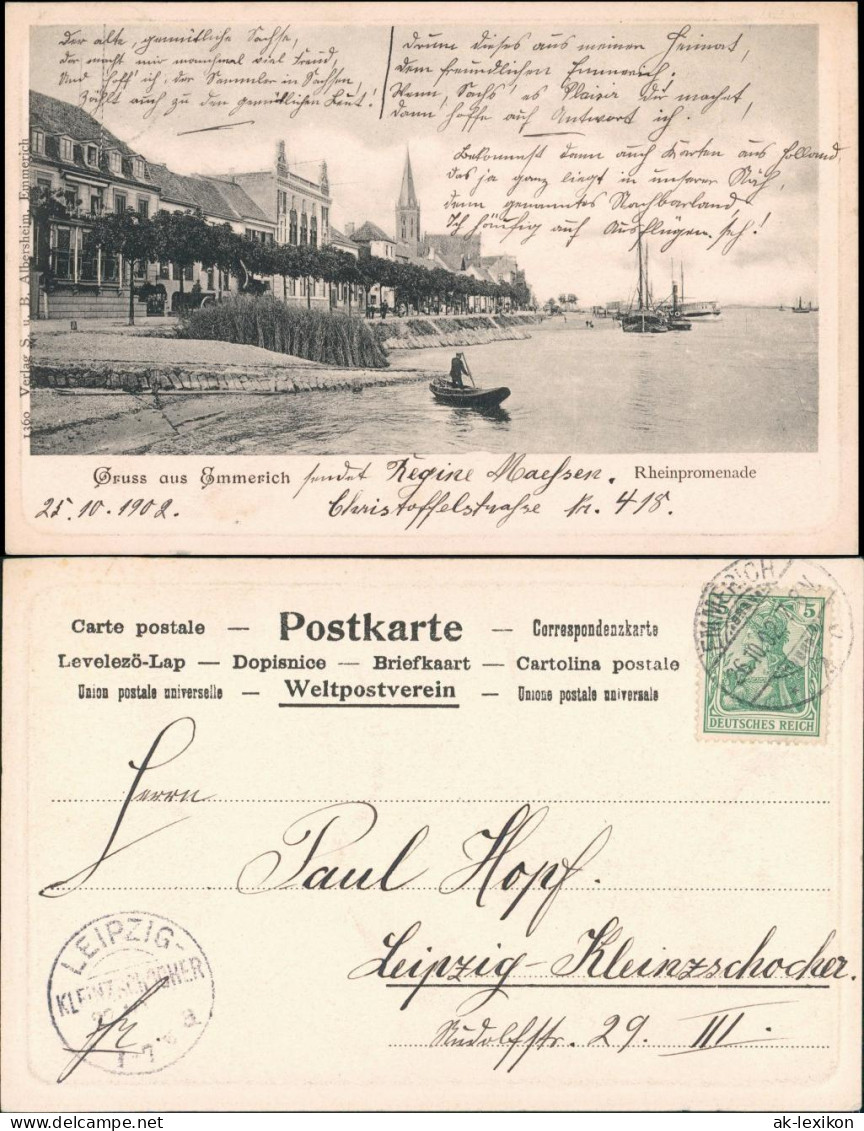 Der alte, gemütliche Sachse,
der macht mir manchmal viel Freud,
Und hoff' ich, der Sammler in Sachsen,
Zählt auch zu den gemütlichen Leut!
Drum dieses aus meiner Heimat,
dem freundlichen Emmerich;
Wenn, Sachs' es Plaisir Dir machet,
dann hoffe auf Antwort ich!
Bekommst dann auch Karten aus Holland,
das ja ganz liegt in unserer Näh,
denn genanntes Nachbarland,
Ich häufig auf Ausflügen seh!
1360 Verlag S. u. B. Albersheim, Emmerich
Gruss aus Emmerich sendet Regine Maessen. Rheinpromenade
25.10.1902. Christoffelstrasse Nr. 418.
Carte postale — Postkarte — Correspondenzkarte
Levelezö-Lap — Dopisnice — Briefkaart — Cartolina postale
Union postale universelle — Weltpostverein — Unione postale universale
EMMERICH
26.10.02
5
DEUTSCHES REICH
Herrn
Paul Hopf.
Leipzig-Kleinzschocher.
Rudolfstr. 29. III.
LEIPZIG-
KLEINZSCHOCHER
ak-lexikon